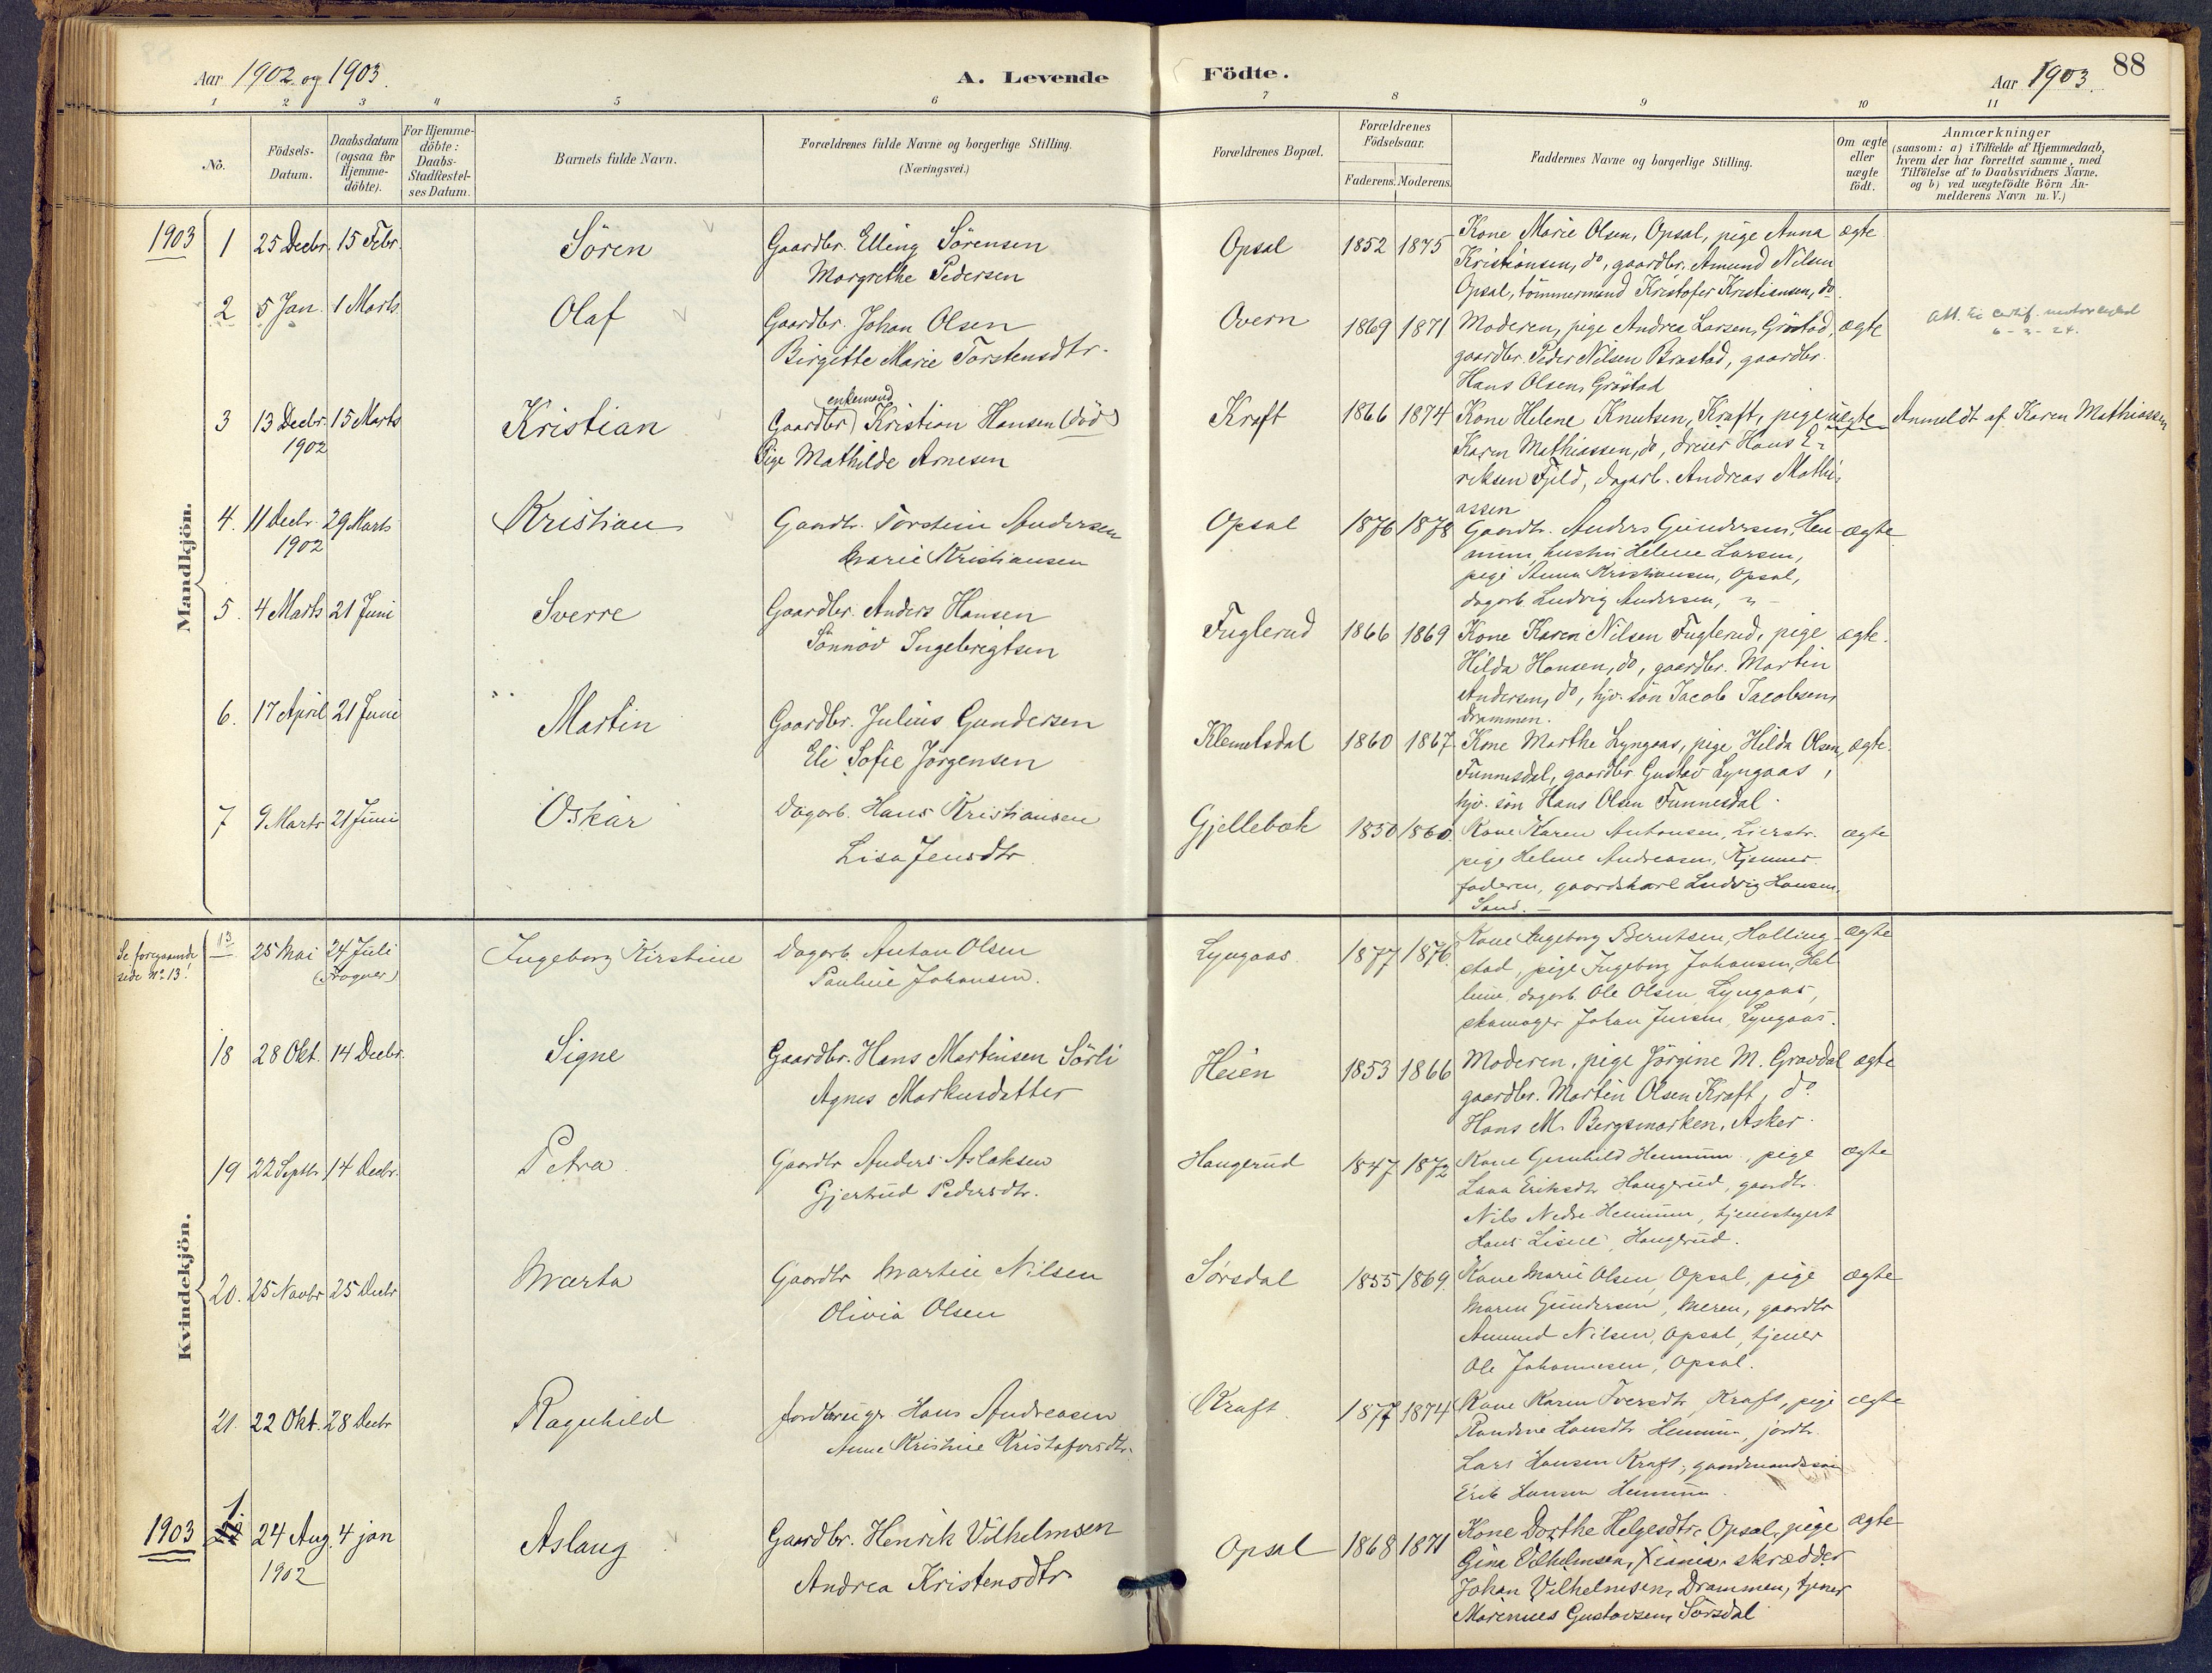 Aar 1902 og 1903.
A. Levende
Födte.
Aar 1903.
88
1 2 3 4 5 6 7 8 9 10 11
No.
Födsels-Datum.
Daabsdatum (ogsaa for Hjemme-döbte).
For Hjemme-döbte: Daabs-Stadfæstel-ses Datum.
Barnets fulde Navn.
Forældrenes fulde Navne og borgerlige Stilling.
(Næringsvei.)
Forældrenes Bopæl.
Forældrenes Födselsaar.
Faderens. Moderens.
Faddernes Navne og borgerlige Stilling.
Om ægte eller uægte födt.
Anmærkninger
(saasom: a) i Tilfælde af Hjemmedaab,
hvem der har forrettet samme, med
Tilföielse af to Daabsvidners Navne,
og b) ved uægtefödte Börn An-
melderens Navn m.V.)
Mandkjön.
1903 1 25 Decbr. 15 Febr. Sören Gaardbr. Elling Sörensen Opsal 1852 1875 Kone Marie Olsen, Opsal, pige Anna ægte
Margrethe Pedersen Kristiansen, do, gaardbr. Amund Nilsen
Opsal, tömmermand Kristofer Kristiansen, do.
2 5 Jan. 1 Marts Olaf Gaardbr. Johan Olsen Overn 1869 1871 Moderen, pige Andrea Larsen, Gröstad, ægte Att. til certif. motorcykel
6-3-24.
Birgitte Marie Torstensdtr. gaardbr. Peder Nilsen Brastad, gaardbr.
Hans Olsen, Gröstad
enkemand
3 13 Decbr. 15 Marts Kristian Gaardbr) Kristian Hansen (död) Kraft 1866 1874 Kone Helene Knutsen, Kraft, pige uægte Anmeldt af Karen Mathiassen
1902 Pige Mathilde Arnesen Karen Mathiassen, do, dreier Hans E-
riksen Fjeld, dagarb. Andreas Mathi-
assen
4. 11 Decbr. 29 Marts Kristian Gaardbr. Torstein Andersen Opsal 1876 1878 Gaardbr. Anders Gundersen, Hen- ægte
1902 Marie Kristiansen num, hustru Helene Larsen,
pige Anna Kristiansen, Opsal,
dagarb. Ludvig Andersen, " -
5. 4 Marts 21 Juni Sverre Gaardbr. Anders Hansen Fuglerud 1866 1869 Kone Karen Nilsen Fuglerud, pige ægte.
Sönnöv Ingebrigtsen Hilda Hansen, do, gaardbr. Martin
Andersen, do, hjv. sön Jacob Jacobsen,
Drammen.
6. 17 April 21 Juni Martin Gaardbr. Julius Gundersen Klemetsdal 1860 1867 Kone Marthe Lyngaas, pige Hilda Olsen, ægte.
Eli Sofie Jörgensen Tunnesdal, gaardbr. Gustav Lyngaas,
hjv. sön Hans Olsen Tunnesdal.
7 9 Marts 21 Juni Oskar Dagarb. Hans Kristiansen Gjellebæk 1850 1860. Kone Karen Antonsen, Lierstr. ægte
Lisa Jensdtr. pige Helene Andreasen, Kjenner.
faderen, gaardskarl Ludvig Hansen,
Sand. -
Kvindekjön.
Se foregaaende
side No 13!
13 25 Mai 24 Juli Ingeborg Kirstine Dagarb. Anton Olsen Lyngaas 1877 1876. Kone Ingeborg Berntsen, Halling- ægte
(Frogner) Pauline Johansen. stad, pige Ingeborg Johansen,
dagarb. Ole Olsen Lyngaas,
skomager Johan Jensen, Lyngaas.
18 28 Okt. 14 Decbr. Signe Gaardbr. Hans Martinsen Sörli Heien 1853 1866 Moderen, pige Jörgine M. Gravdal ægte
Agnes Markusdatter gaardbr. Martin Olsen Kraft, do.
Hans M. Bergsmarken, Asker.
19 22 Septbr. 14 Decbr. Petra Gaardbr Anders Aslaksen Haugerud 1847 1872 Kone Gunhild Hennum, pige ægte
Gjertrud Pedersdtr. Lava Eriksdtr Haugerud, gaardbr.
Nils Nedre Hennum, tjenestegut
Hans Haugerud.
20. 25 Novbr 25 Decbr Marta Gaardbr Martin Nilsen Sörsdal 1855 1869. Kone Marie Olsen, Opsal, pige ægte
Olivia Olsen Maren Gundersen, Meren, gaardbr
Amund Nilsen, Opsal, tjener
Ole Johannesen, Opsal.
21. 22 Okt. 28 Decbr Ragnhild Jordbruger Hans Andreasen Kraft. 1877 1874 Kone Karen Iversdtr, Kraft, pige ægte
Anne Kristine Kristofersdtr. Randine Hansdtr Hennum, jordbr.
Lars Hansen Kraft, gaardmandssön
Erik Hansen Hennum.
1903 1 24 Aug. 4 jan Aslaug Gaardbr. Henrik Vilhelmsen Opsal 1868 1871 Kone Dorthe Helgesdtr. Opsal, pige ægte
1902 Andrea Kristensdtr. Gina Vilhelmsen, Xiania, skrædder
Johan Vilhelmsen, Drammen, tjener
Marinius Gustavsen, Sörsdal